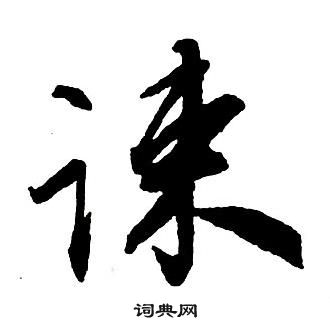 谏
词典网